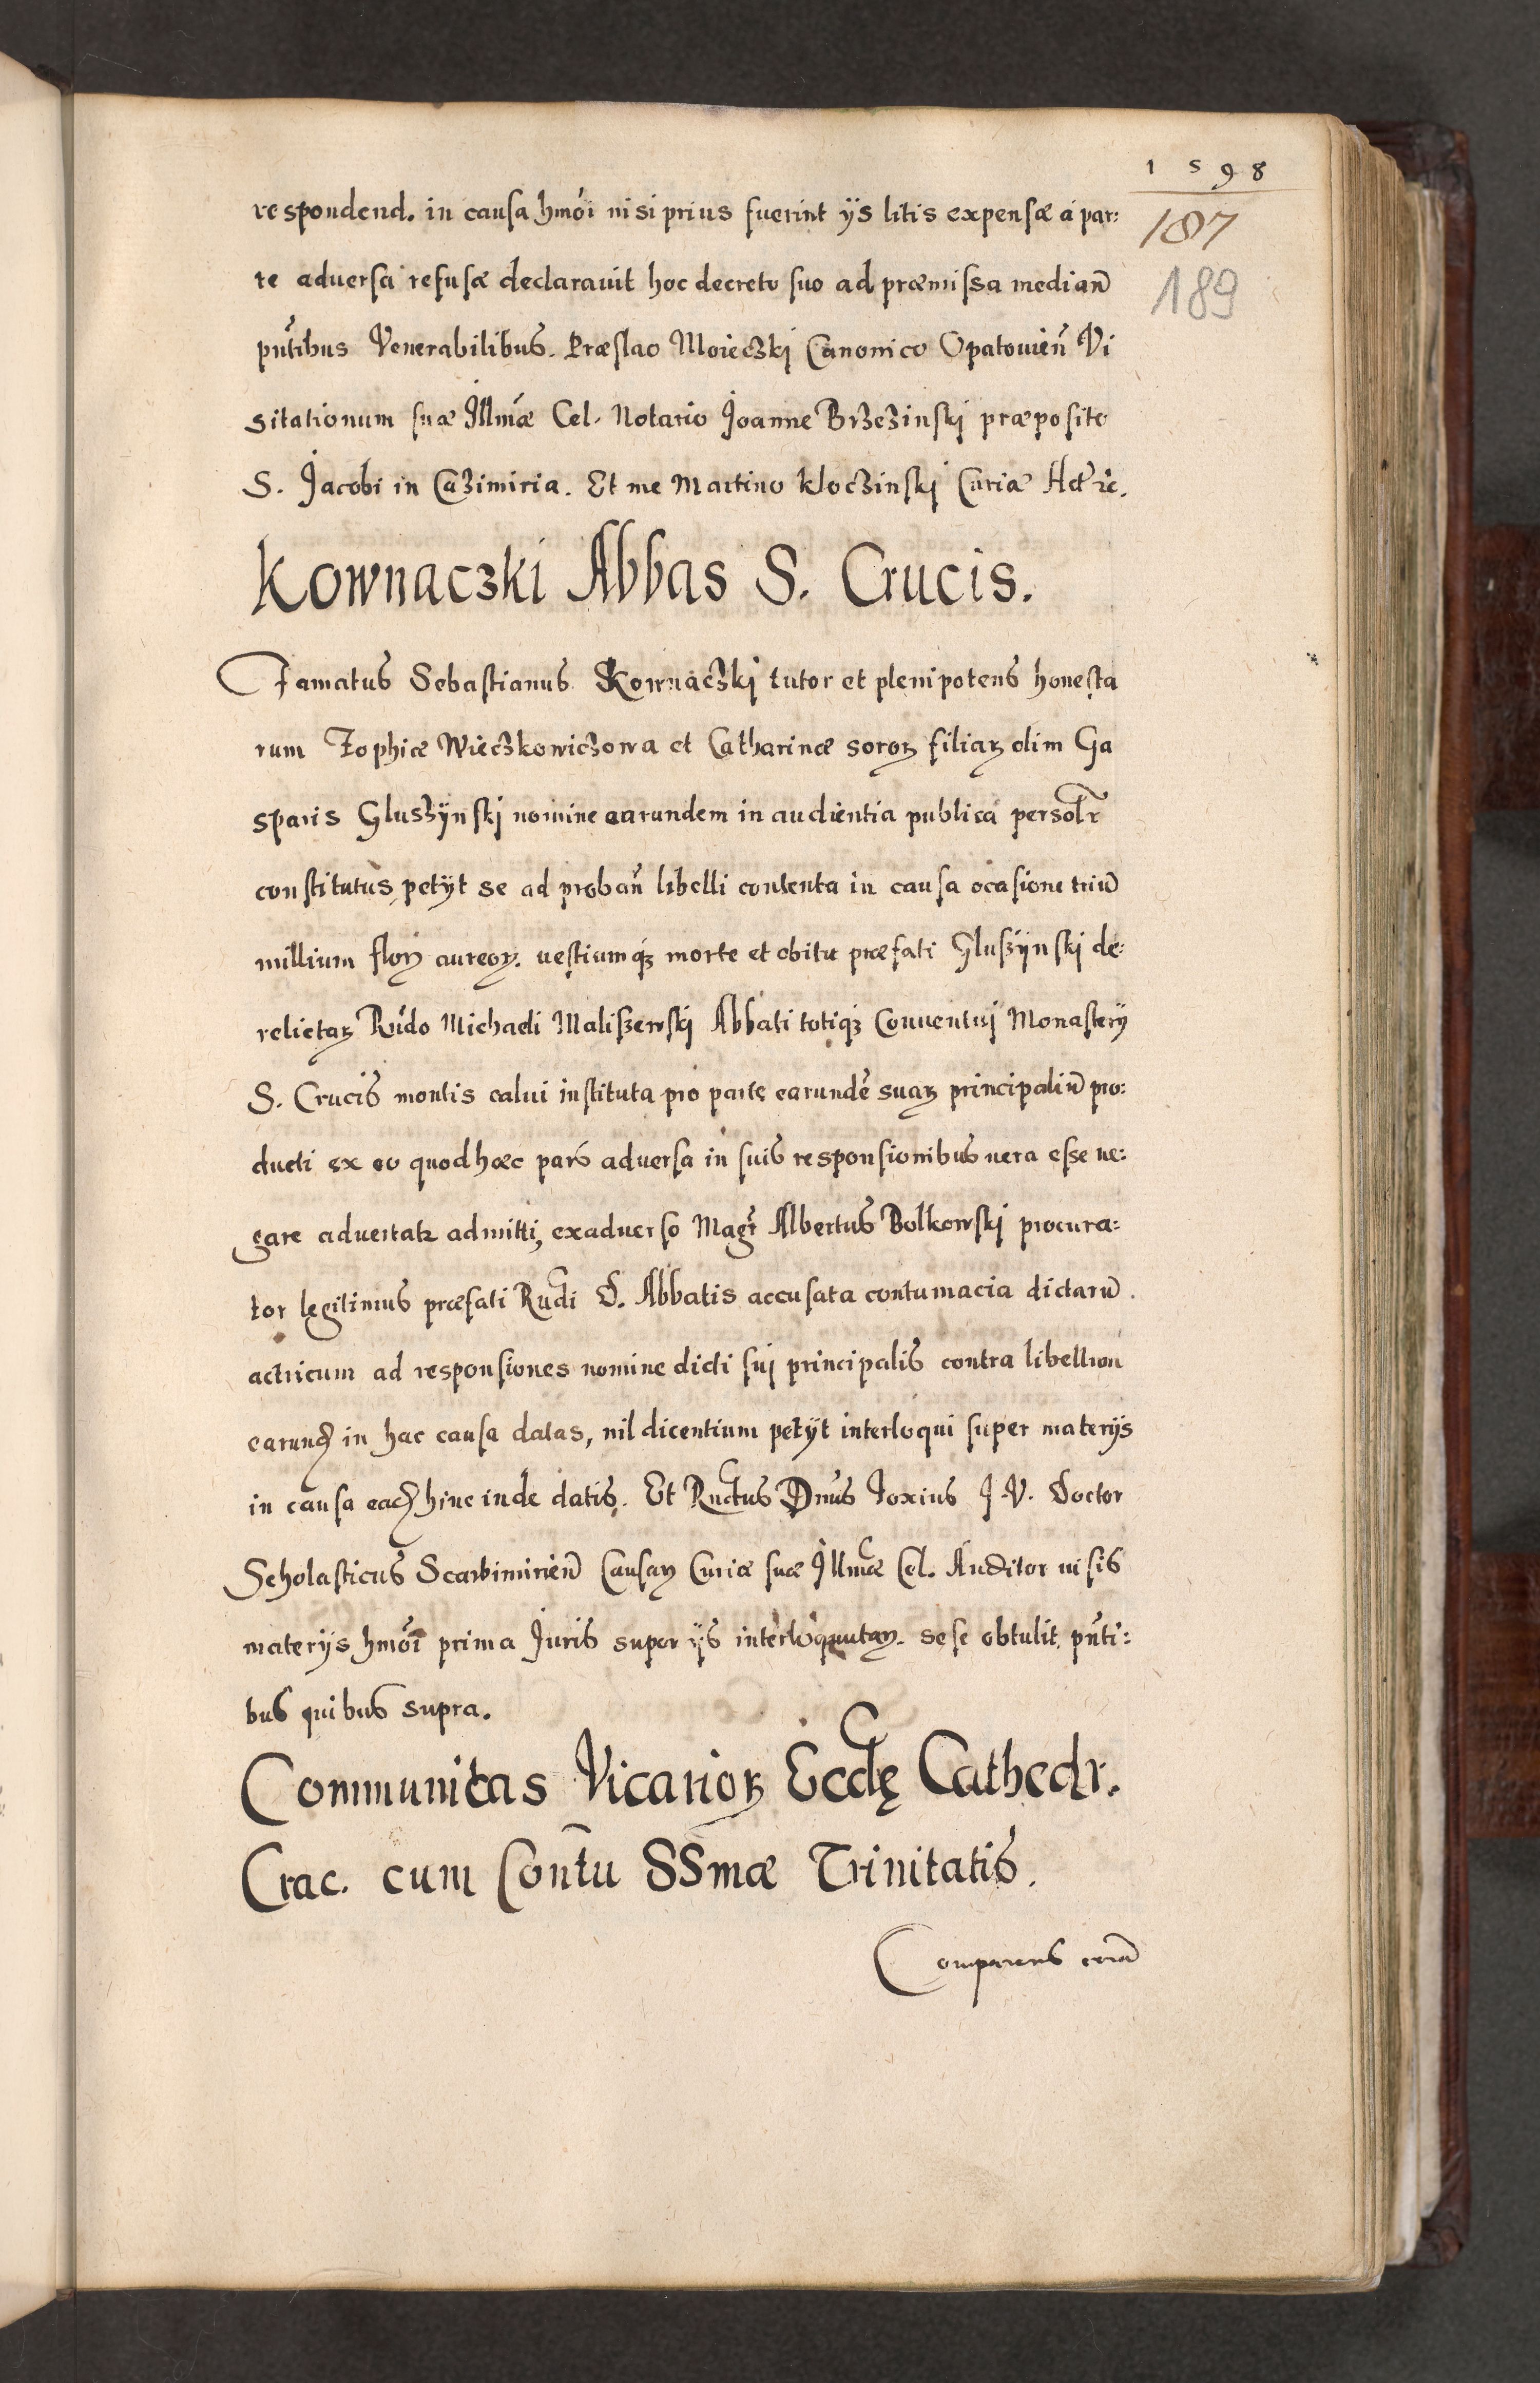 1598
187
189
respondend. in causa hmōi nisi prius fuerint ijs litis expensæ a par:
te adversa refusæ declarauit hoc decreto suo ad præmissa mediañ
pñtibus Venerabilibus. Præslao Moieczki Canonico Opatouieñ Vi
sitationum suæ Illmæ Cel. Notario Joanne Brzezinski præposito
S. Jacobi in Cazimiria. Et me Martino Kloczinski Curiæ
Kownaczki Abbas S. Crucis.
Famatus Sebastianus Kownaczki tutor et plenipotens honesta
rum Zophiæ Wieczkowiczowa et Catharinæ sororꝝ filiarꝝ olim Ga
sparis Gluszÿnski nomine earundem in audientia publica persolr
constitutus petÿt se ad probañ libelli contenta in causa ocasione triū
millium florꝝ aureorꝝ. uestiumqꝫ morte et obitu præfati Gluszÿnski de:
relictarꝝ Rñdo Michaeli Maliszewski Abbati totiqꝫ Conuentuj Monasterÿ
S. Crucis montis calui instituta pro parte earundē suarꝝ principaliū pro:
ducti ex eo quod hæc pars aduersa in suis responsionibus uera esse ne:
gare aduertatr admitti, exaduerso Magr Albertus Bolkowski procura:
tor legitimus præfati Rndi D. Abbatis accusata contumacia dictarū.
actricum ad responsiones nomine dicti suj principalis contra libellum
earund in hac causa datas, nil dicentium petÿt interloqui super materÿs
in causa ead hinc inde datis. Et Rndus Dnus Foxius J. V. Doctor
Scholasticus Scarbimirieñ Causarꝝ Curiæ suæ Illmæ Cel. Auditor uisis
materÿs hmōi prima Juris super ÿs interloquuturꝝ. sese obtulit pñti:
bus quibus supra.
Communitas Vicariorꝝ Eccłę Cathedr.
Crac. cum Contu SSmæ Trinitatis.
Comparens corā